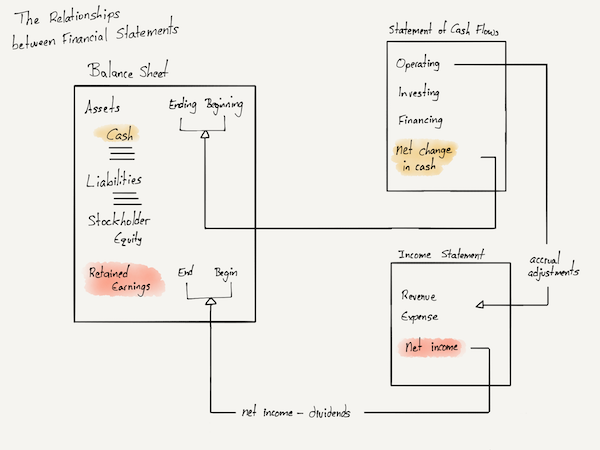 The Relationships
between Financial Statements
Balance Sheet
Assets
Ending Beginning
Cash
Liabilities
Stockholder
Equity
Retained
Earnings
End Begin
Statement of Cash Flows
Operating
Investing
Financing
Net change
in cash
Income Statement
Revenue
Expense
Net income
accrual
adjustments
net income - dividends